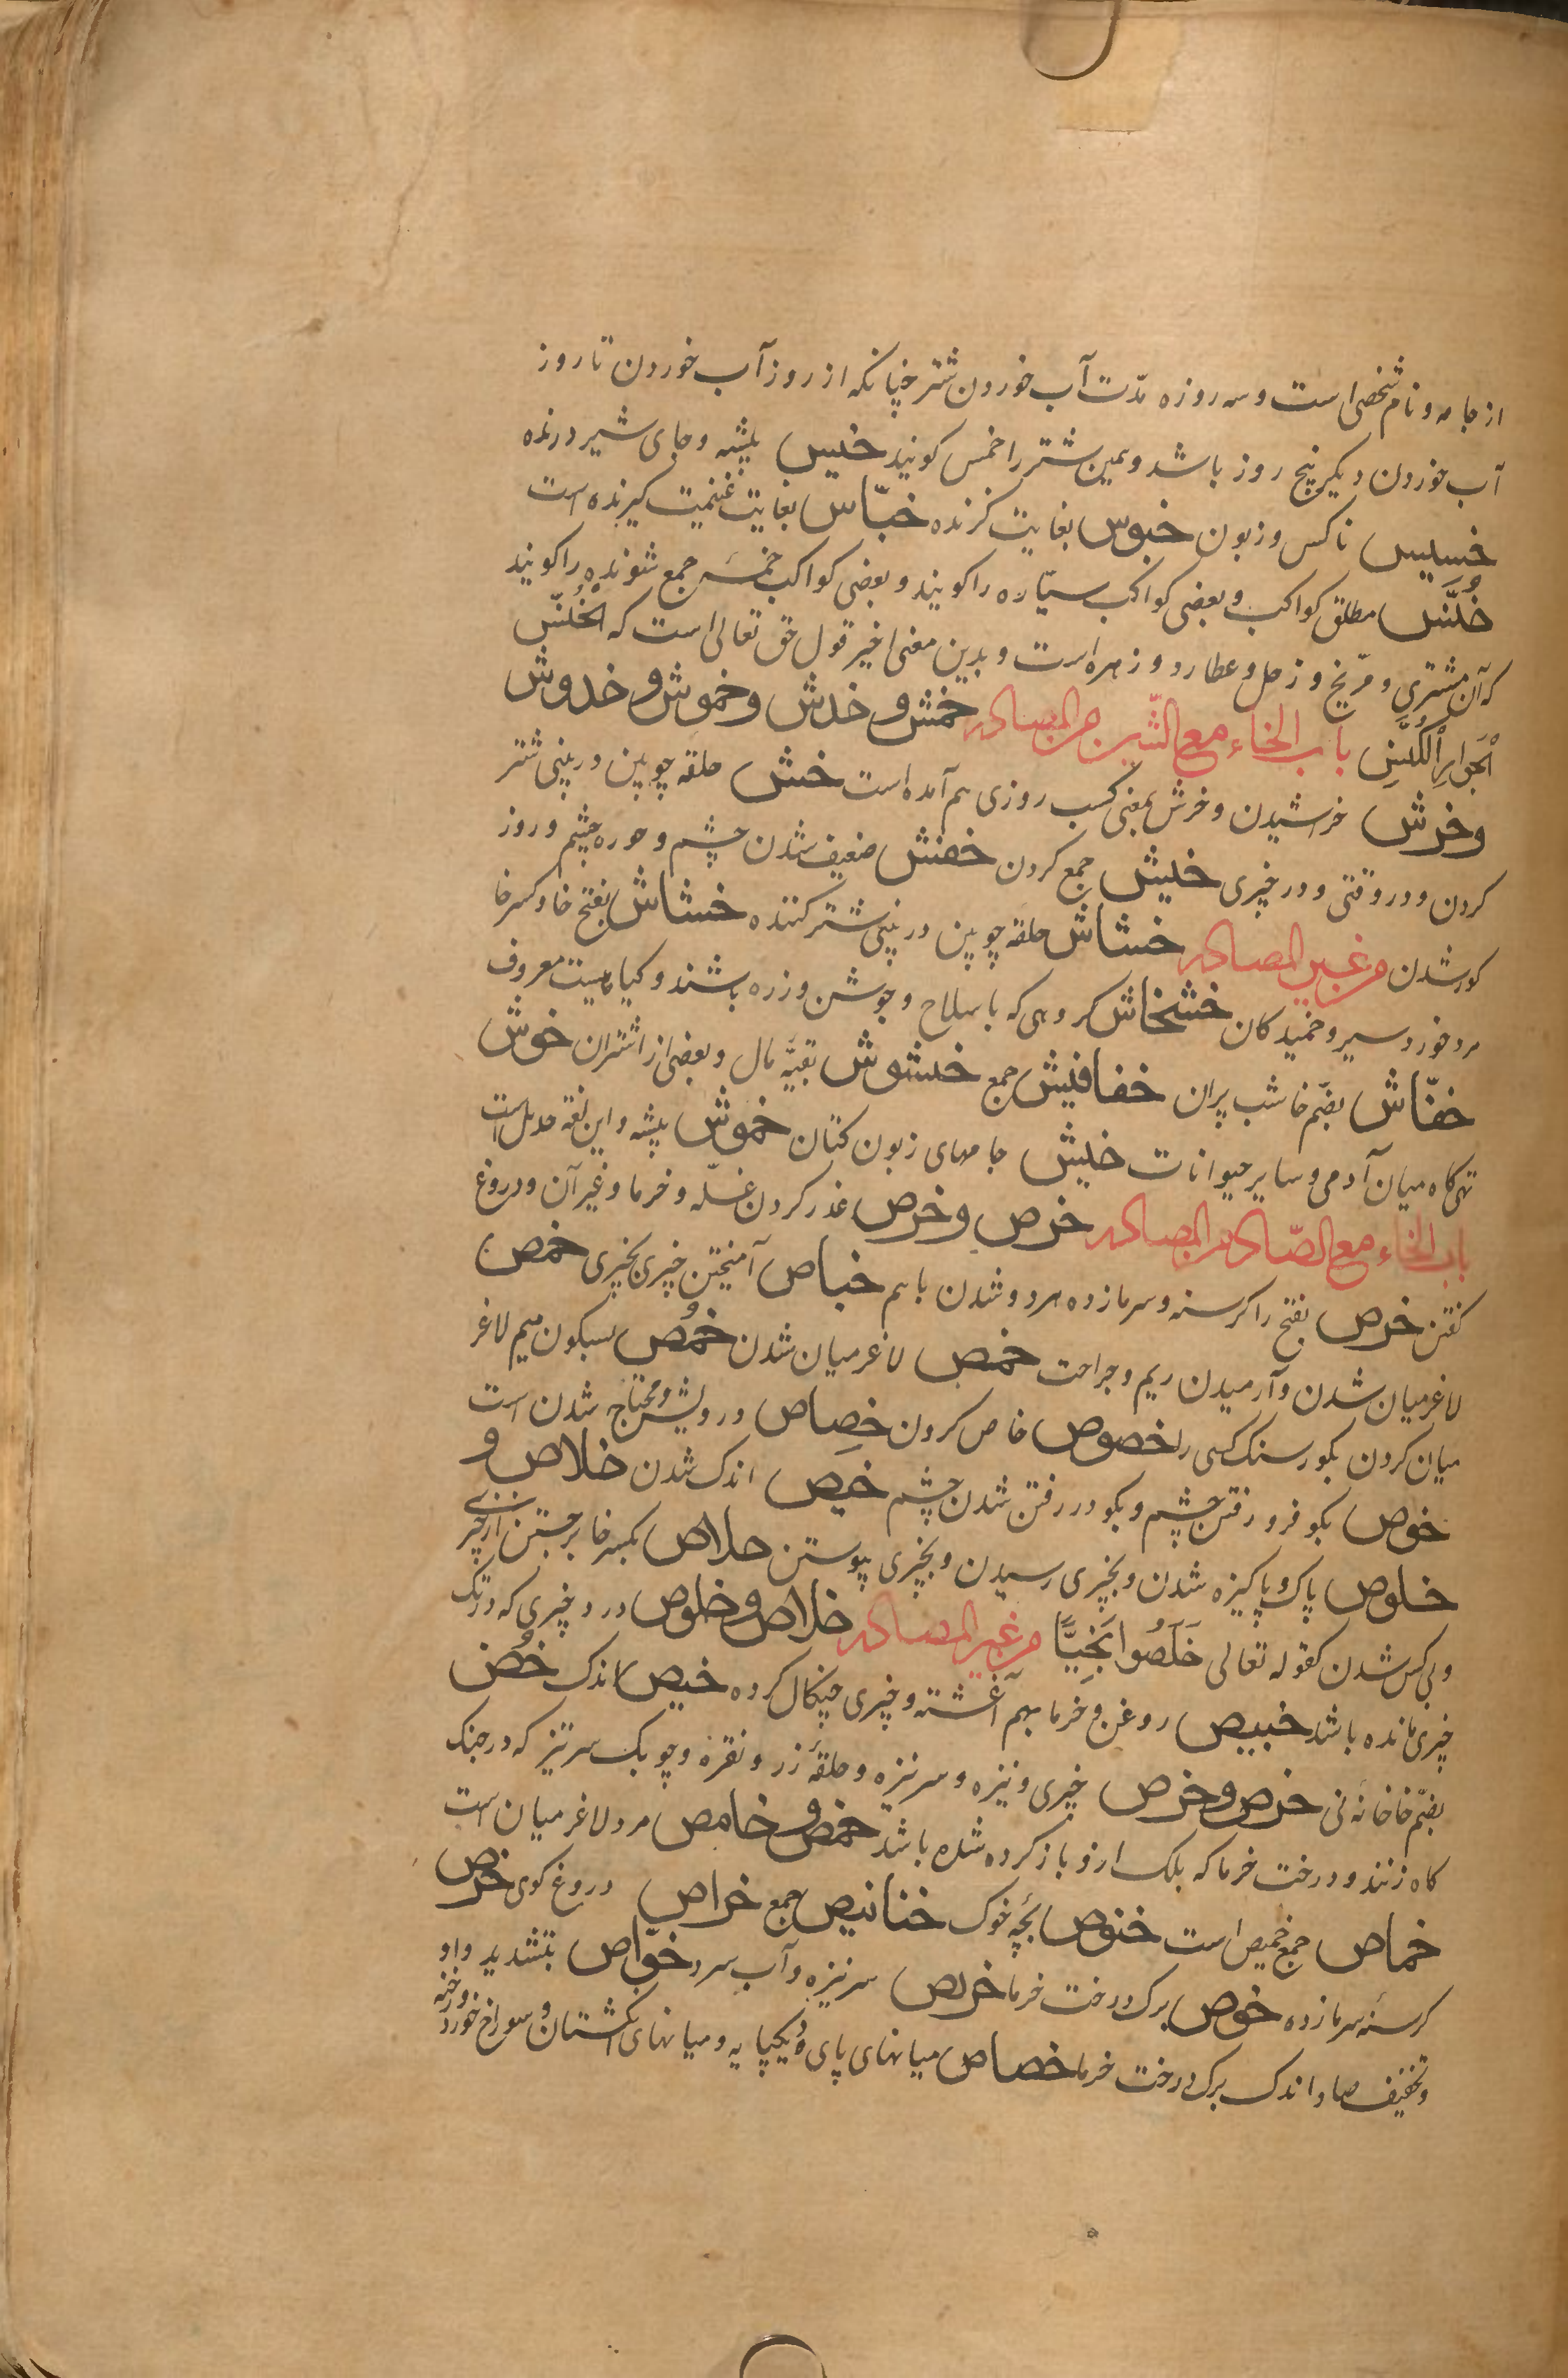 از جامه و نام شخصی است و سه روزه مدّت آب خوردن شتر چنانکه از روز آب خوردن تا روز
آب خوردن دیگر پنج روز باشد و همین شتر را خمس کویند خیس بیشه و جای شیر درنده
خسیس ناکس و زبون خبوس بغایت کزنده خبّاس بغایت غنیمت کیرنده است
خُنَّس مطلق کواکب و بعضی کواکب سیّاره را کویند و بعضی کواکب خمسه جمع شونده را کویند
که آن مشتری و مرّیخ و زحل و عطارد و زهره است و بدین معنی اخیر قول حق تعالی است که الخُنَّس
الجوار الکُنَّس باب الخاء مع الشّین من المصادر خمش و خدش و خموش و خدوش
و خرش خراشیدن و خرش بمعنی کسب روزی هم آمده است خش حلقه چوبین در بینی شتر
کردن و در وقتی و در چیزی خیش جمع کردن خفش ضعیف شدن چشم و حوره چشم و روز
کور شدن من غیر المصادر خشاش حلقه چوبین در بینی شتر کننده خشاش بفتح خا و کسر خا
مرد خورد سیر و خمیدکان خشخاش کروهی که با سلاح و جوشن و زره باشند و کیاهیست معروف
خفّاش بضمّ خا شب پران خفافیش جمع خشوش بقیّه مال و بعضی از اشتران خوش
تهی کاه میان آدمی و سایر حیوانات خیش جامهای زبون کتان خموش پشه و این لغة هذیل است
باب الخاء مع الصّاد من المصادر خرص و خرص غذر کردن غلّه و خرما و غیر آن و دروغ
کفتن خرص بفتح را کرسنه و سرمازده هر دو شدن با هم خباص آمیختن چیزی بچیزی خمص
لاغر میان شدن و آرمیدن ریم و جراحت خمص لاغر میان شدن خمُص بسکون میم لاغر
میان کردن بکورسنک کسی را خصوص خاص کردن خِصاص درویش و محتاج شدن است
خوص بکو فرو رفتن چشم و بکو در رفتن شدن چشم خیص اندک شدن خلاص و
خلوص پاک و پاکیزه شدن و بچیزی رسیدن و بچیزی پیوستن خلاص بکسر خا برجستن از چیزی
و بی کس شدن کقوله تعالی خَلَصُوا نَجِیًّا من غیر المصادر خلاص و خلوص درد چیزی که در تک
چیزی مانده باشد خبیص روغن و خرما بهم آغشته و چیزی چنکال کرده خیص اندک خُص
بضمّ خا خانه نی خرص و خرص چیزی و نیزه و سر نیزه و حلقه زر و نقره و چوبک سر تیز که در جنک
کاه زنند و درخت خرما که بلک ازو باز کرده شده باشد خمص و خامص مرد لاغر میان است
خماص جمع خمیص است خنوص بچّه خوک خنانیص جمع خراص دروغ کوی خرص
کرسنه سرمازده خوص برک درخت خرما خریص سر نیزه و آب سرد خوّاص بتشدید واو
و تخفیف صاد اندک برک درخت خرما خصاص میانهای پای دیکپایه و میانهای انکشتان و سوراخ خورد و رخنه